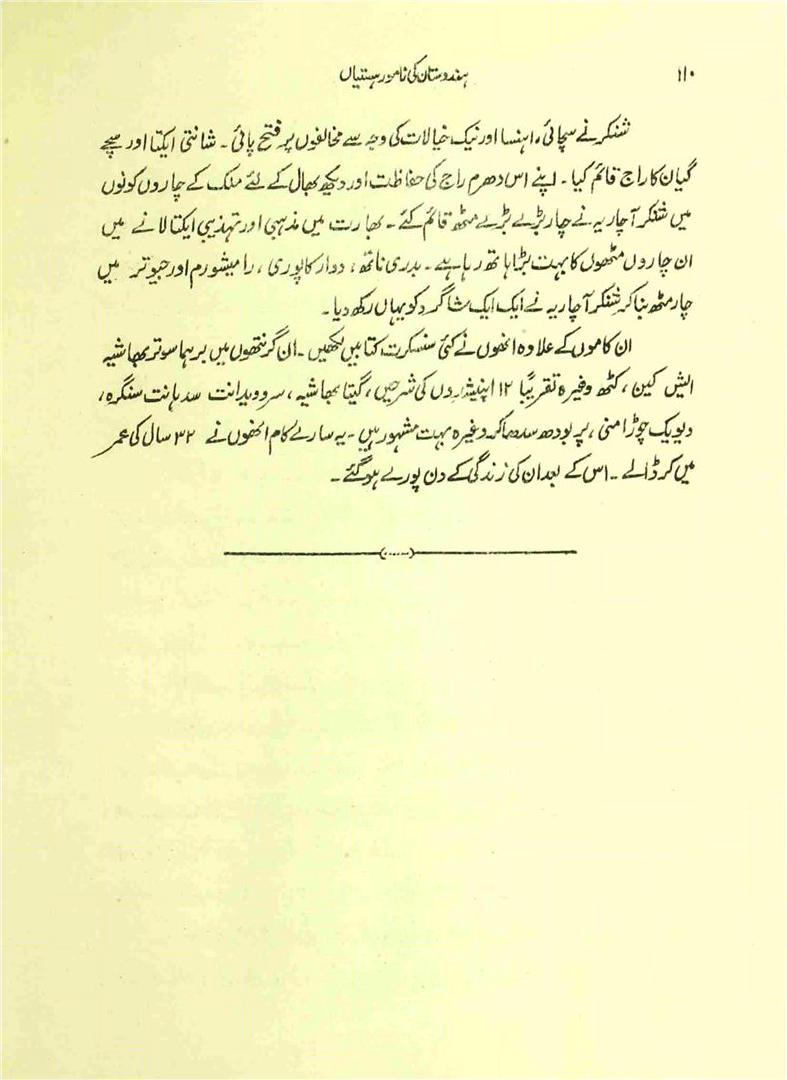 ۱۱۰ ہندوستان کی نامور ہستیاں
شنکر نے سچائی، اہنسا اور نیک خیالات کی وجہ سے مخالفوں پر فتح پائی۔ شانتی ایکتا اور سچے
گیان کا راج قائم کیا۔ اپنے اس دھرم راج کی حفاظت اور دیکھ بھال کے لئے ملک کے چاروں کونوں
میں شنکر آچاریہ نے چار بڑے بڑے مٹھ قائم کئے۔ بھارت میں مذہبی اور تہذیبی ایکتا لانے میں
ان چاروں مٹھوں کا بہت بڑا ہاتھ رہا ہے۔ بدری ناتھ، دوارکا پوری، رامیشورم اور جیوتر میں
چار مٹھ بنا کر شنکر آچاریہ نے ایک ایک شاگرد کو یہاں رکھ دیا۔
ان کاموں کے علاوہ انھوں نے کئی سنسکرت کتابیں لکھیں۔ ان گرنتھوں میں برہما سوتر بھاشیہ
ایش کین، کٹھ وغیرہ تقریباً ۱۲ اپنیشدوں کی شرحیں، گیتا بھاشیہ، سرو ویدانت سدہانت سنگرہ،
ویویک چوڑامنی، پربودھ سدھاکر وغیرہ بہت مشہور ہیں۔ یہ سارے کام انھوں نے ۳۲ سال کی عمر
میں کر ڈالے۔ اس کے بعد ان کی زندگی کے دن پورے ہو گئے۔